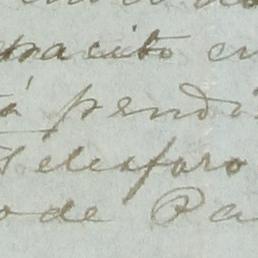 pacito en
á pendi
Telesforo
o de Pa